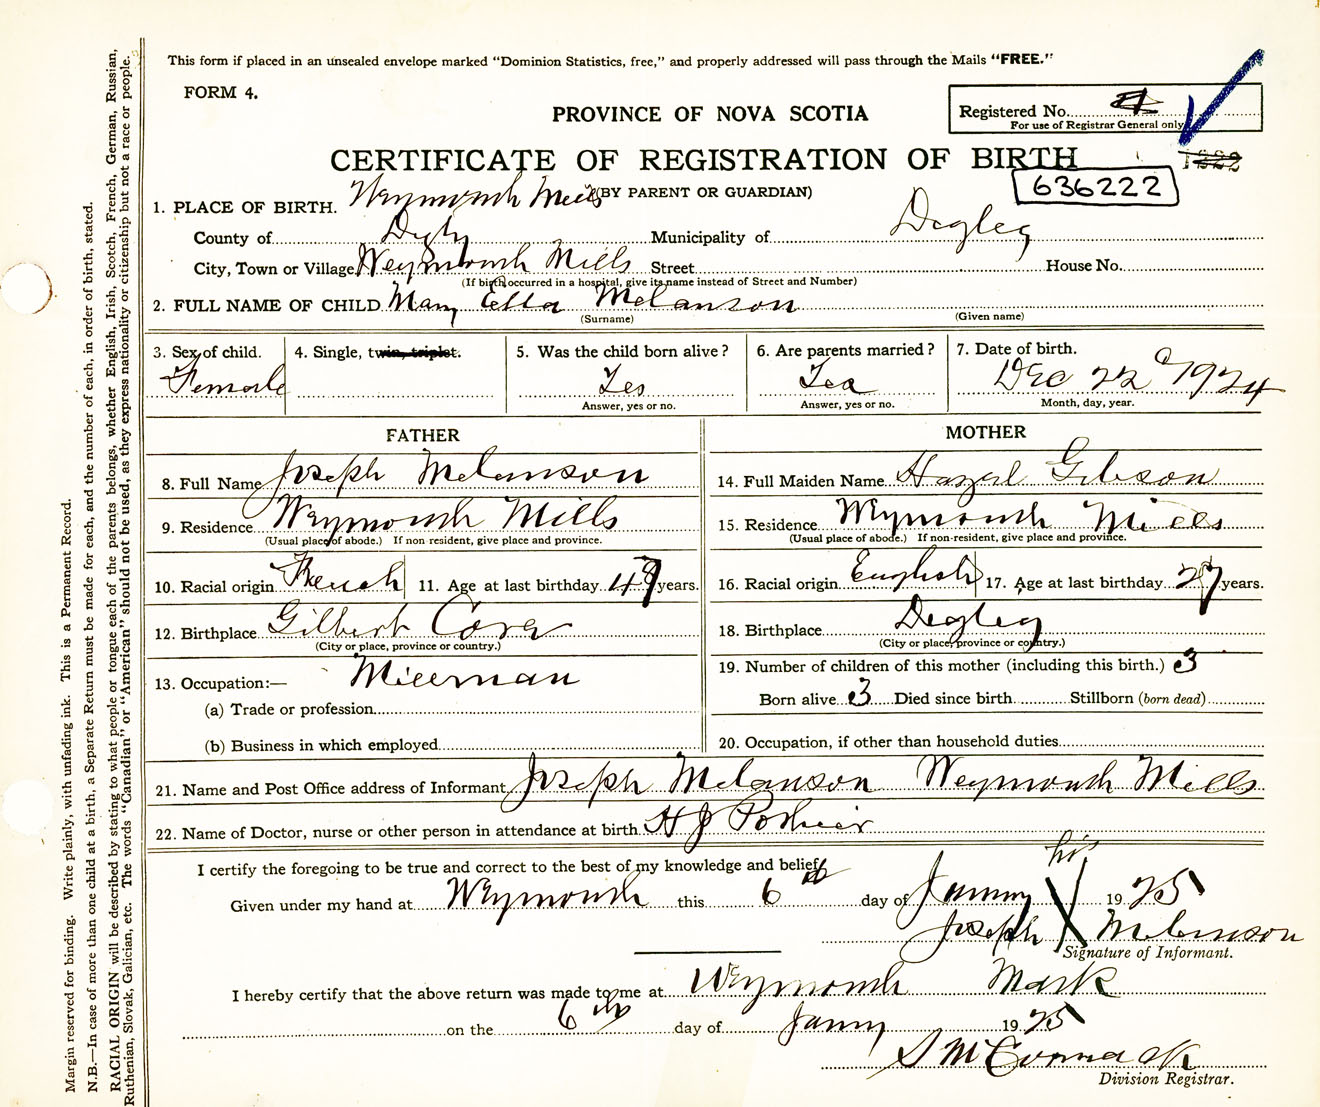 This form if placed in an unsealed envelope marked "Dominion Statistics, free," and properly addressed will pass through the Mails "FREE."
FORM 4.
PROVINCE OF NOVA SCOTIA
Registered No.
For use of Registrar General only
CERTIFICATE OF REGISTRATION OF BIRTH
(BY PARENT OR GUARDIAN)
636222
1. PLACE OF BIRTH. Weymouth Mills
County of Digby Municipality of Digley
City, Town or Village Weymouth Mills Street House No.
(If birth occurred in a hospital, give its name instead of Street and Number)
2. FULL NAME OF CHILD Mary Etta Melanson
(Surname) (Given name)
3. Sex of child. 4. Single, twin, triplet. 5. Was the child born alive? 6. Are parents married? 7. Date of birth.
Female Yes Yea Dec 22 1924
Answer, yes or no. Answer, yes or no. Month, day, year.
FATHER MOTHER
8. Full Name Joseph Melanson 14. Full Maiden Name Hazal Gibson
9. Residence Weymouth Mills 15. Residence Weymouth Mills
(Usual place of abode.) If non resident, give place and province. (Usual place of abode.) If non-resident, give place and province.
10. Racial origin French 11. Age at last birthday 49 years. 16. Racial origin English 17. Age at last birthday 27 years.
12. Birthplace Gilbert Cove 18. Birthplace Digley
(City or place, province or country.) (City or place, province or country.)
13. Occupation:— Millman 19. Number of children of this mother (including this birth.) 3
(a) Trade or profession Born alive 3 Died since birth Stillborn (born dead)
(b) Business in which employed 20. Occupation, if other than household duties
21. Name and Post Office address of Informant Joseph Melanson Weymouth Mills
22. Name of Doctor, nurse or other person in attendance at birth. H J Pothier
I certify the foregoing to be true and correct to the best of my knowledge and belief.
Given under my hand at Weymouth this 6th day of Janny 1925
his
Joseph X Melanson
Signature of Informant.
Mark
I hereby certify that the above return was made to me at Weymouth
on the 6th day of Janny 1925
S McCormack
Division Registrar.
Margin reserved for binding. Write plainly, with unfading ink. This is a Permanent Record.
N.B.—In case of more than one child at a birth, a Separate Return must be made for each, and the number of each, in order of birth, stated.
RACIAL ORIGIN will be described by stating to what people or tongue each of the parents belongs, whether English, Irish, Scotch, French, German, Russian,
Ruthenian, Slovak, Galician, etc. The words "Canadian" or "American" should not be used, as they express nationality or citizenship but not a race or people.